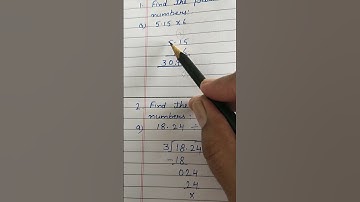 1. Find the
numbers:
a) 5.15 x 6
5.15
6
30.
2. Find the
numbers:
a) 18.24 ÷
3)18.24
-18
024
24
x